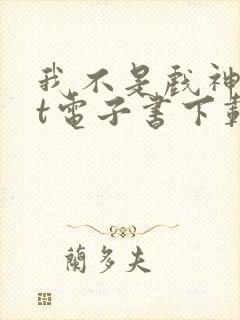 我不是戲神
t電子書下載
蘭多夫